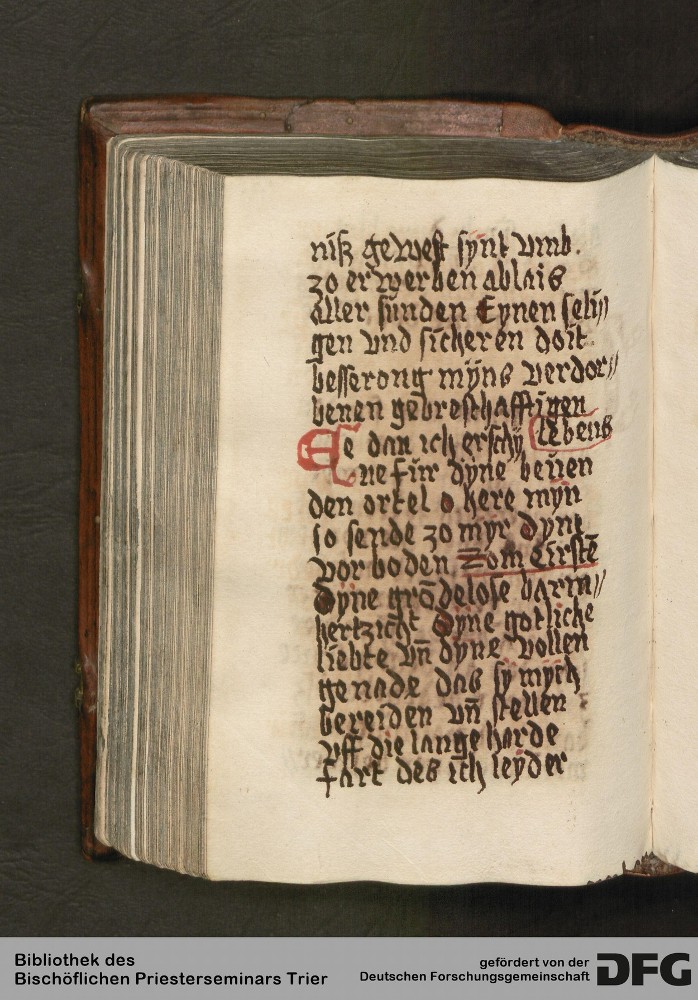 niß gewest sÿnt vmb.
zo erwerben ablais
aller sunden Eynen seli//
gen vnd sicheren doit
besserong mÿns verdor//
benen gebresthafftigen
Ee dan ich erschÿ lebens
ne fur dÿne beuen
den ortel o here mÿn
so sende zo mÿr dÿne
vorboden Zom eirstē
Dÿne grōdelose barm//
hertzicht Dÿne gotliche
liebte vn̄ dÿne vollen
genade das sÿ mÿch
bereiden vn̄ stellen
vff die lange harde
fart des ich leÿder
Bibliothek des
Bischöflichen Priesterseminars Trier
gefördert von der
Deutschen Forschungsgemeinschaft
DFG